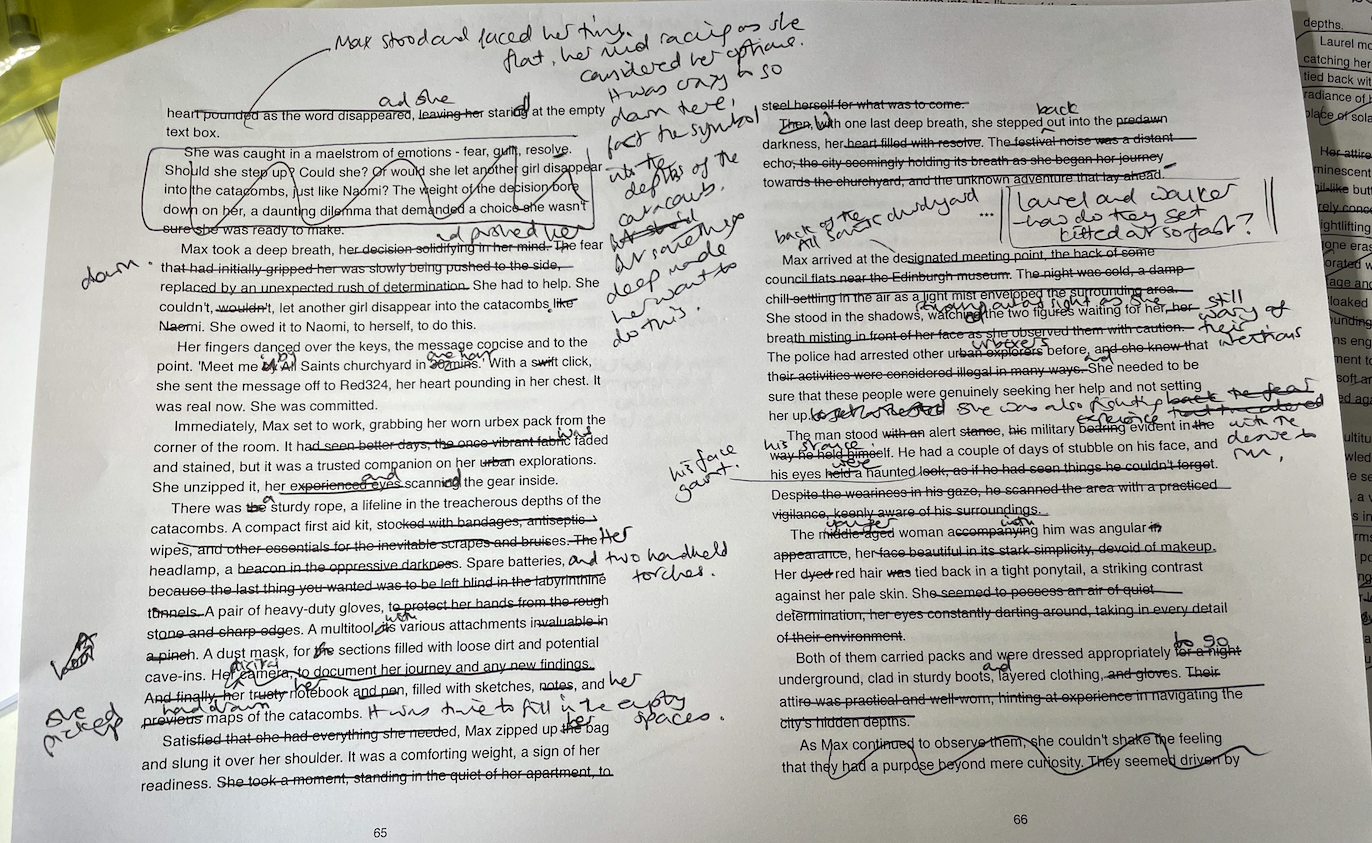 Max stood and paced her tiny
flat, her mind racing as she
considered her options.
It was crazy to go
down there,
the symbol
into the
depths of the
catacombs.
But something
deep made
her want to
do this.
and she
heart pounded as the word disappeared, leaving her staring at the empty
text box.
She was caught in a maelstrom of emotions - fear, guilt, resolve.
Should she step up? Could she? Or would she let another girl disappear
into the catacombs, just like Naomi? The weight of the decision bore
down on her, a daunting dilemma that demanded a choice she wasn't
sure she was ready to make.
and pushed her
Max took a deep breath, her decision solidifying in her mind. The fear
down.
that had initially gripped her was slowly being pushed to the side,
replaced by an unexpected rush of determination. She had to help. She
couldn't, wouldn't, let another girl disappear into the catacombs like
Naomi. She owed it to Naomi, to herself, to do this.
Her fingers danced over the keys, the message concise and to the
by one hour
point. 'Meet me at All Saints churchyard in 30 mins.' With a swift click,
she sent the message off to Red324, her heart pounding in her chest. It
was real now. She was committed.
Immediately, Max set to work, grabbing her worn urbex pack from the
was
corner of the room. It had seen better days, the once vibrant fabric faded
and stained, but it was a trusted companion on her urban explorations.
and
She unzipped it, her experienced eyes scanning the gear inside.
a
There was the sturdy rope, a lifeline in the treacherous depths of the
catacombs. A compact first aid kit, stocked with bandages, antiseptic
wipes, and other essentials for the inevitable scrapes and bruises. The Her
headlamp, a beacon in the oppressive darkness. Spare batteries, and two handheld
torches.
because the last thing you wanted was to be left blind in the labyrinthine
tunnels. A pair of heavy-duty gloves, to protect her hands from the rough
with
stone and sharp edges. A multitool, its various attachments invaluable in
a pinch. A dust mask, for the sections filled with loose dirt and potential
digital
cave-ins. Her camera, to document her journey and any new findings.
her
And finally, her trusty notebook and pen, filled with sketches, notes, and her
hand drawn
previous maps of the catacombs. It was time to fill in the empty
spaces.
she
picked
her
Satisfied that she had everything she needed, Max zipped up the bag
and slung it over her shoulder. It was a comforting weight, a sign of her
readiness. She took a moment, standing in the quiet of her apartment, to
65
steel herself for what was to come.
back
Then, with one last deep breath, she stepped out into the predawn
darkness, her heart filled with resolve. The festival noise was a distant
echo, the city seemingly holding its breath as she began her journey
towards the churchyard, and the unknown adventure that lay ahead.
Laurel and Walker
- how do they get
kitted out so fast?
back of the
All Saints churchyard ...
Max arrived at the designated meeting point, the back of some
council flats near the Edinburgh museum. The night was cold, a damp
chill settling in the air as a light mist enveloped the surrounding area.
She stood in the shadows, watching the two figures waiting for her, her
still
wary of
their
intentions
breath misting in front of her face as she observed them with caution.
urbexers
The police had arrested other urban explorers before, and she knew that
and
their activities were considered illegal in many ways. She needed to be
sure that these people were genuinely seeking her help and not setting
her up. She was also fighting back the fear
with the
desire to
run.
The man stood with an alert stance, his military bearing evident in the
his stance.
way he held himself. He had a couple of days of stubble on his face, and
his face
gaunt.
were
his eyes held a haunted look, as if he had seen things he couldn't forget.
Despite the weariness in his gaze, he scanned the area with a practiced
vigilance, keenly aware of his surroundings.
younger with
The middle-aged woman accompanying him was angular in
appearance, her face beautiful in its stark simplicity, devoid of makeup.
Her dyed red hair was tied back in a tight ponytail, a striking contrast
against her pale skin. She seemed to possess an air of quiet
determination, her eyes constantly darting around, taking in every detail
of their environment.
to go
Both of them carried packs and were dressed appropriately for a night
and
underground, clad in sturdy boots, layered clothing, and gloves. Their
attire was practical and well-worn, hinting at experience in navigating the
city's hidden depths.
As Max continued to observe them, she couldn't shake the feeling
that they had a purpose beyond mere curiosity. They seemed driven by
66
depths.
Laurel mo
catching her
tied back wit
radiance of
place of sola
Her attire